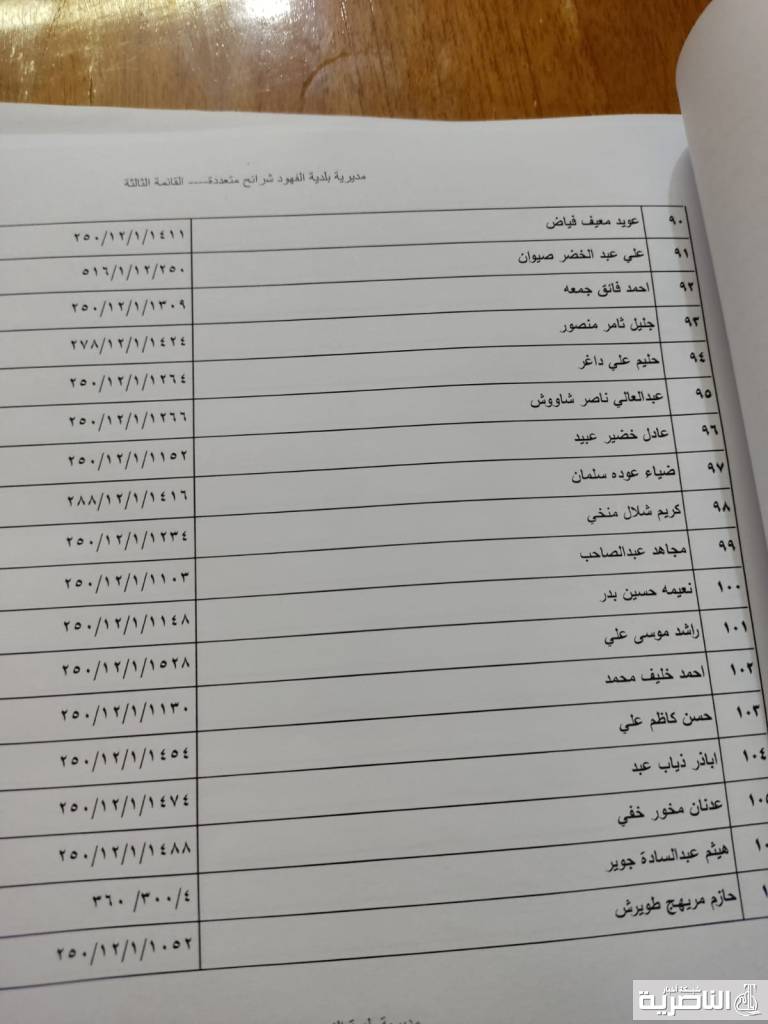 مديرية بلدية الفهود شرائح متعددة---- القائمة الثالثة
٩٠ عويد معيف فياض ٢٥٠/١٢/١/١٤١١
٩١ علي عبد الخضر صيوان ٥١٦/١/١٢/٢٥٠
٩٢ احمد فائق جمعه ٢٥٠/١٢/١/١٣٠٩
٩٣ جليل ثامر منصور ٢٧٨/١٢/١/١٤٢٤
٩٤ حليم علي داغر ٢٥٠/١٢/١/١٢٦٤
٩٥ عبدالعالي ناصر شاووش ٢٥٠/١٢/١/١٢٦٦
٩٦ عادل خضير عبيد ٢٥٠/١٢/١/١١٥٢
٩٧ ضياء عوده سلمان ٢٨٨/١٢/١/١٤١٦
٩٨ كريم شلال منخي ٢٥٠/١٢/١/١٢٣٤
٩٩ مجاهد عبدالصاحب ٢٥٠/١٢/١/١١٠٣
١٠٠ نعيمه حسين بدر ٢٥٠/١٢/١/١١٤٨
١٠١ راشد موسى علي ٢٥٠/١٢/١/١٥٢٨
١٠٢ احمد خليف محمد ٢٥٠/١٢/١/١١٣٠
١٠٣ حسن كاظم علي ٢٥٠/١٢/١/١٤٥٤
١٠٤ اباذر ذياب عبد ٢٥٠/١٢/١/١٤٧٤
١٠٥ عدنان مخور خفي ٢٥٠/١٢/١/١٤٨٨
هيثم عبدالسادة جوير ٣٦٠ /٣٠٠/٤
حازم مريهج طويرش ٢٥٠/١٢/١/١٠٥٢
شبكة أخبار
الناصرية